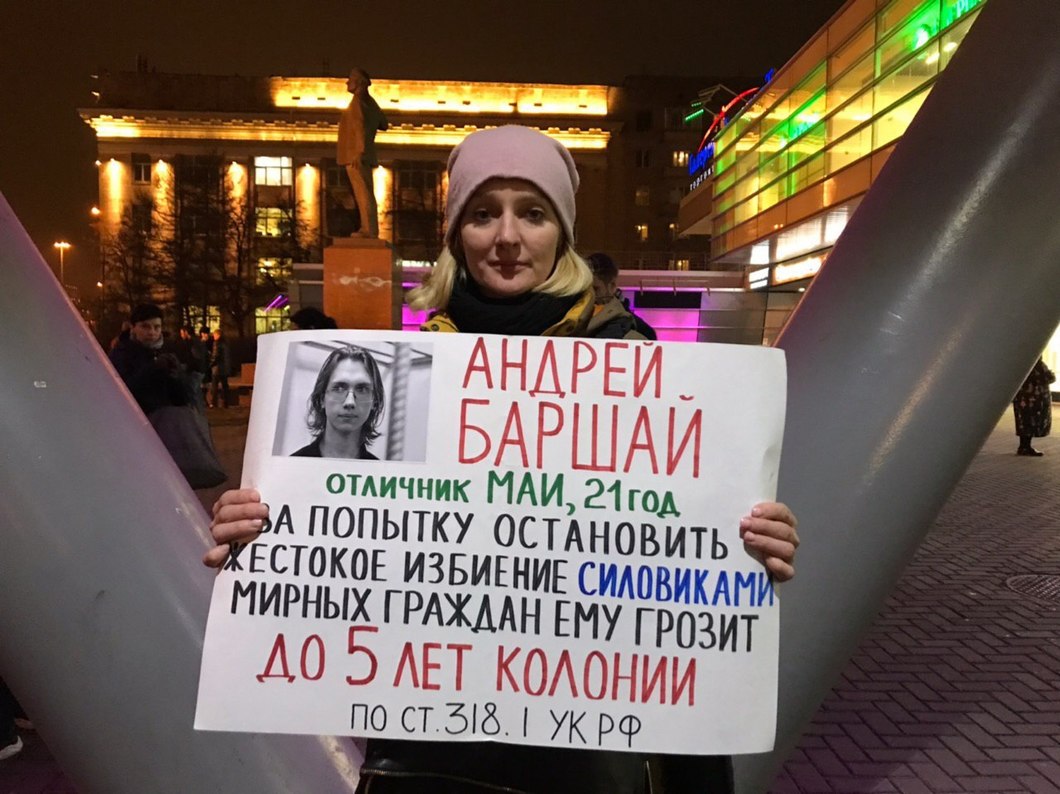 АНДРЕЙ
БАРШАЙ
ОТЛИЧНИК МАИ, 21 ГОД
ЗА ПОПЫТКУ ОСТАНОВИТЬ
ЖЕСТОКОЕ ИЗБИЕНИЕ СИЛОВИКАМИ
МИРНЫХ ГРАЖДАН ЕМУ ГРОЗИТ
ДО 5 ЛЕТ КОЛОНИИ
ПО СТ. 318. 1 УК РФ